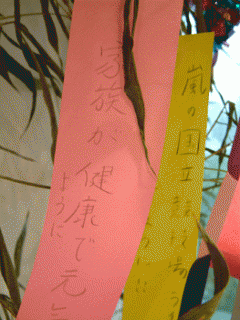 家族が健康で元気
ように
嵐の国立競技場